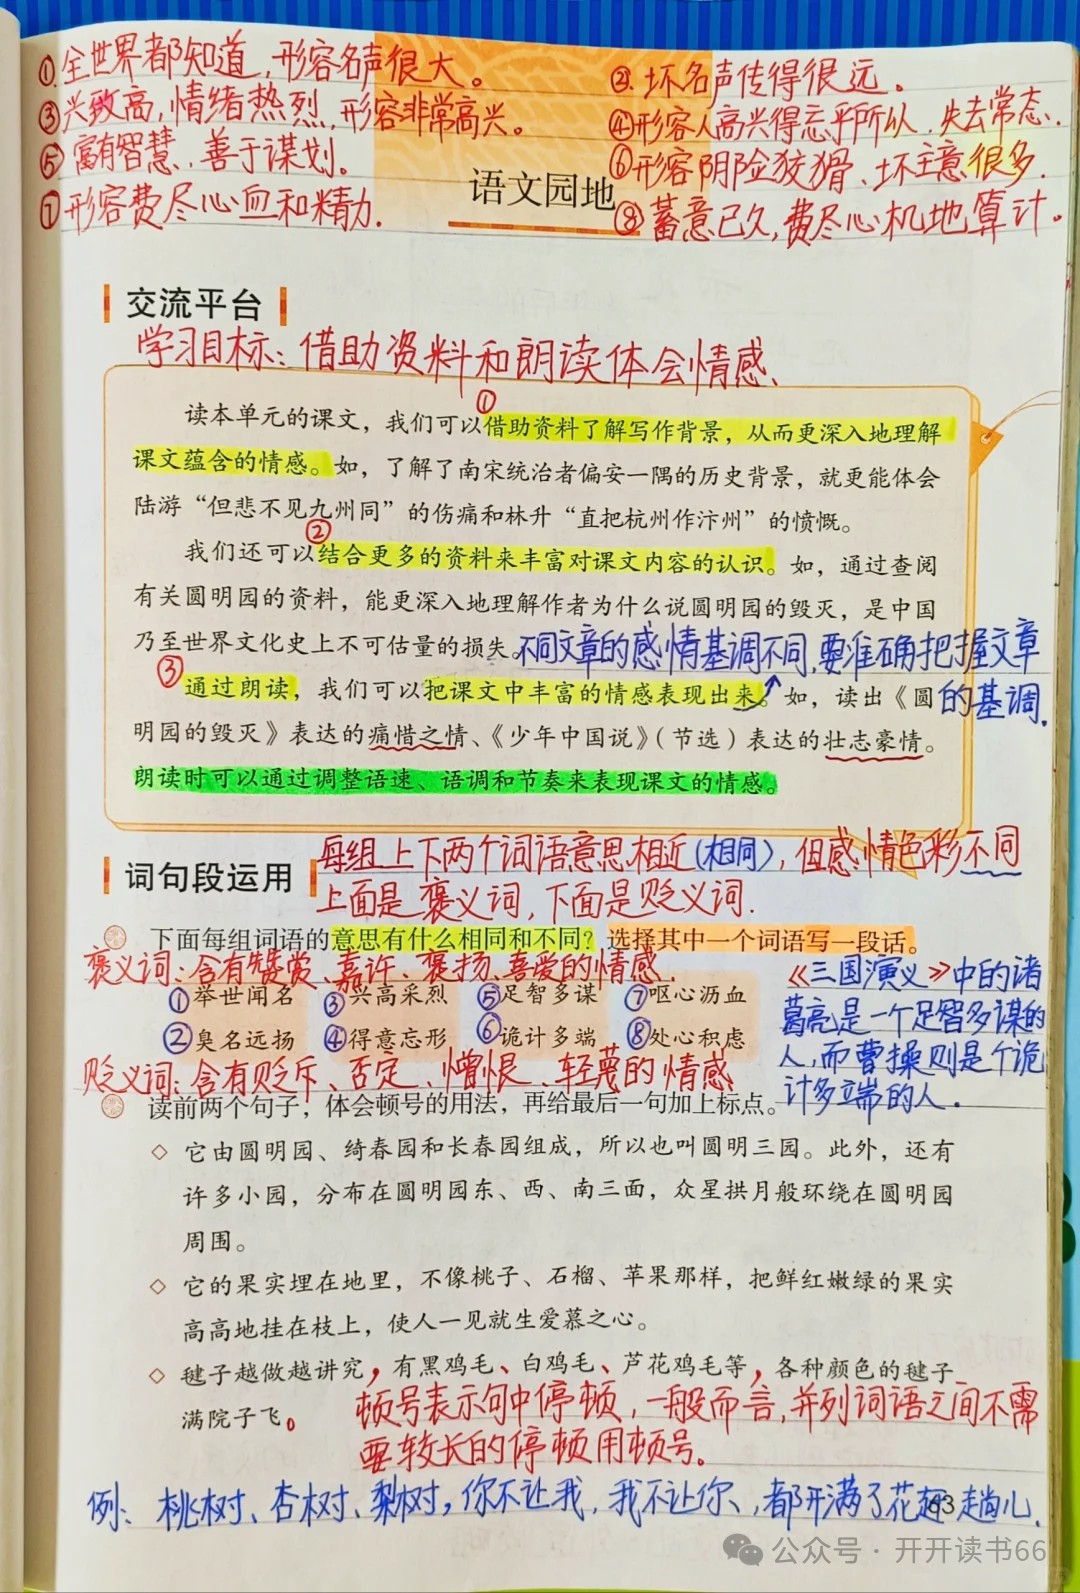 ①全世界都知道,形容名声很大。
②坏名声传得很远。
③兴致高,情绪热烈,形容非常高兴。
④形容人高兴得忘乎所以、失去常态.
⑤富有智慧、善于谋划。
⑥形容阴险狡猾、坏主意很多.
⑦形容费尽心血和精力.
⑧蓄意已久,费尽心机地算计。
语文园地
交流平台
学习目标:借助资料和朗读体会情感、
①
读本单元的课文，我们可以借助资料了解写作背景，从而更深入地理解
课文蕴含的情感。如，了解了南宋统治者偏安一隅的历史背景，就更能体会
陆游“但悲不见九州同”的伤痛和林升“直把杭州作汴州”的愤慨。
②
我们还可以结合更多的资料来丰富对课文内容的认识。如，通过查阅
有关圆明园的资料，能更深入地理解作者为什么说圆明园的毁灭，是中国
乃至世界文化史上不可估量的损失。
不同文章的感情基调不同,要准确把握文章
的基调.
③
通过朗读，我们可以把课文中丰富的情感表现出来。如，读出《圆
明园的毁灭》表达的痛惜之情、《少年中国说》（节选）表达的壮志豪情。
朗读时可以通过调整语速、语调和节奏来表现课文的情感。
词句段运用
每组上下两个词语意思相近(相同),但感情色彩不同
上面是褒义词,下面是贬义词.
下面每组词语的意思有什么相同和不同？选择其中一个词语写一段话。
褒义词:含有赞赏、嘉许、褒扬、喜爱的情感.
①举世闻名 ③兴高采烈 ⑤足智多谋 ⑦呕心沥血
②臭名远扬 ④得意忘形 ⑥诡计多端 ⑧处心积虑
贬义词:含有贬斥、否定、憎恨、轻蔑的情感.
《三国演义》中的诸
葛亮是一个足智多谋的
人,而曹操则是个诡
计多端的人.
读前两个句子，体会顿号的用法，再给最后一句加上标点。
◇ 它由圆明园、绮春园和长春园组成，所以也叫圆明三园。此外，还有
许多小园，分布在圆明园东、西、南三面，众星拱月般环绕在圆明园
周围。
◇ 它的果实埋在地里，不像桃子、石榴、苹果那样，把鲜红嫩绿的果实
高高地挂在枝上，使人一见就生爱慕之心。
◇ 毽子越做越讲究，有黑鸡毛、白鸡毛、芦花鸡毛等，各种颜色的毽子
满院子飞。
顿号表示句中停顿,一般而言,并列词语之间不需
要较长的停顿用顿号。
例:桃树、杏树、梨树,你不让我,我不让你、都开满了花赶趟儿.
63
公众号·开开读书66